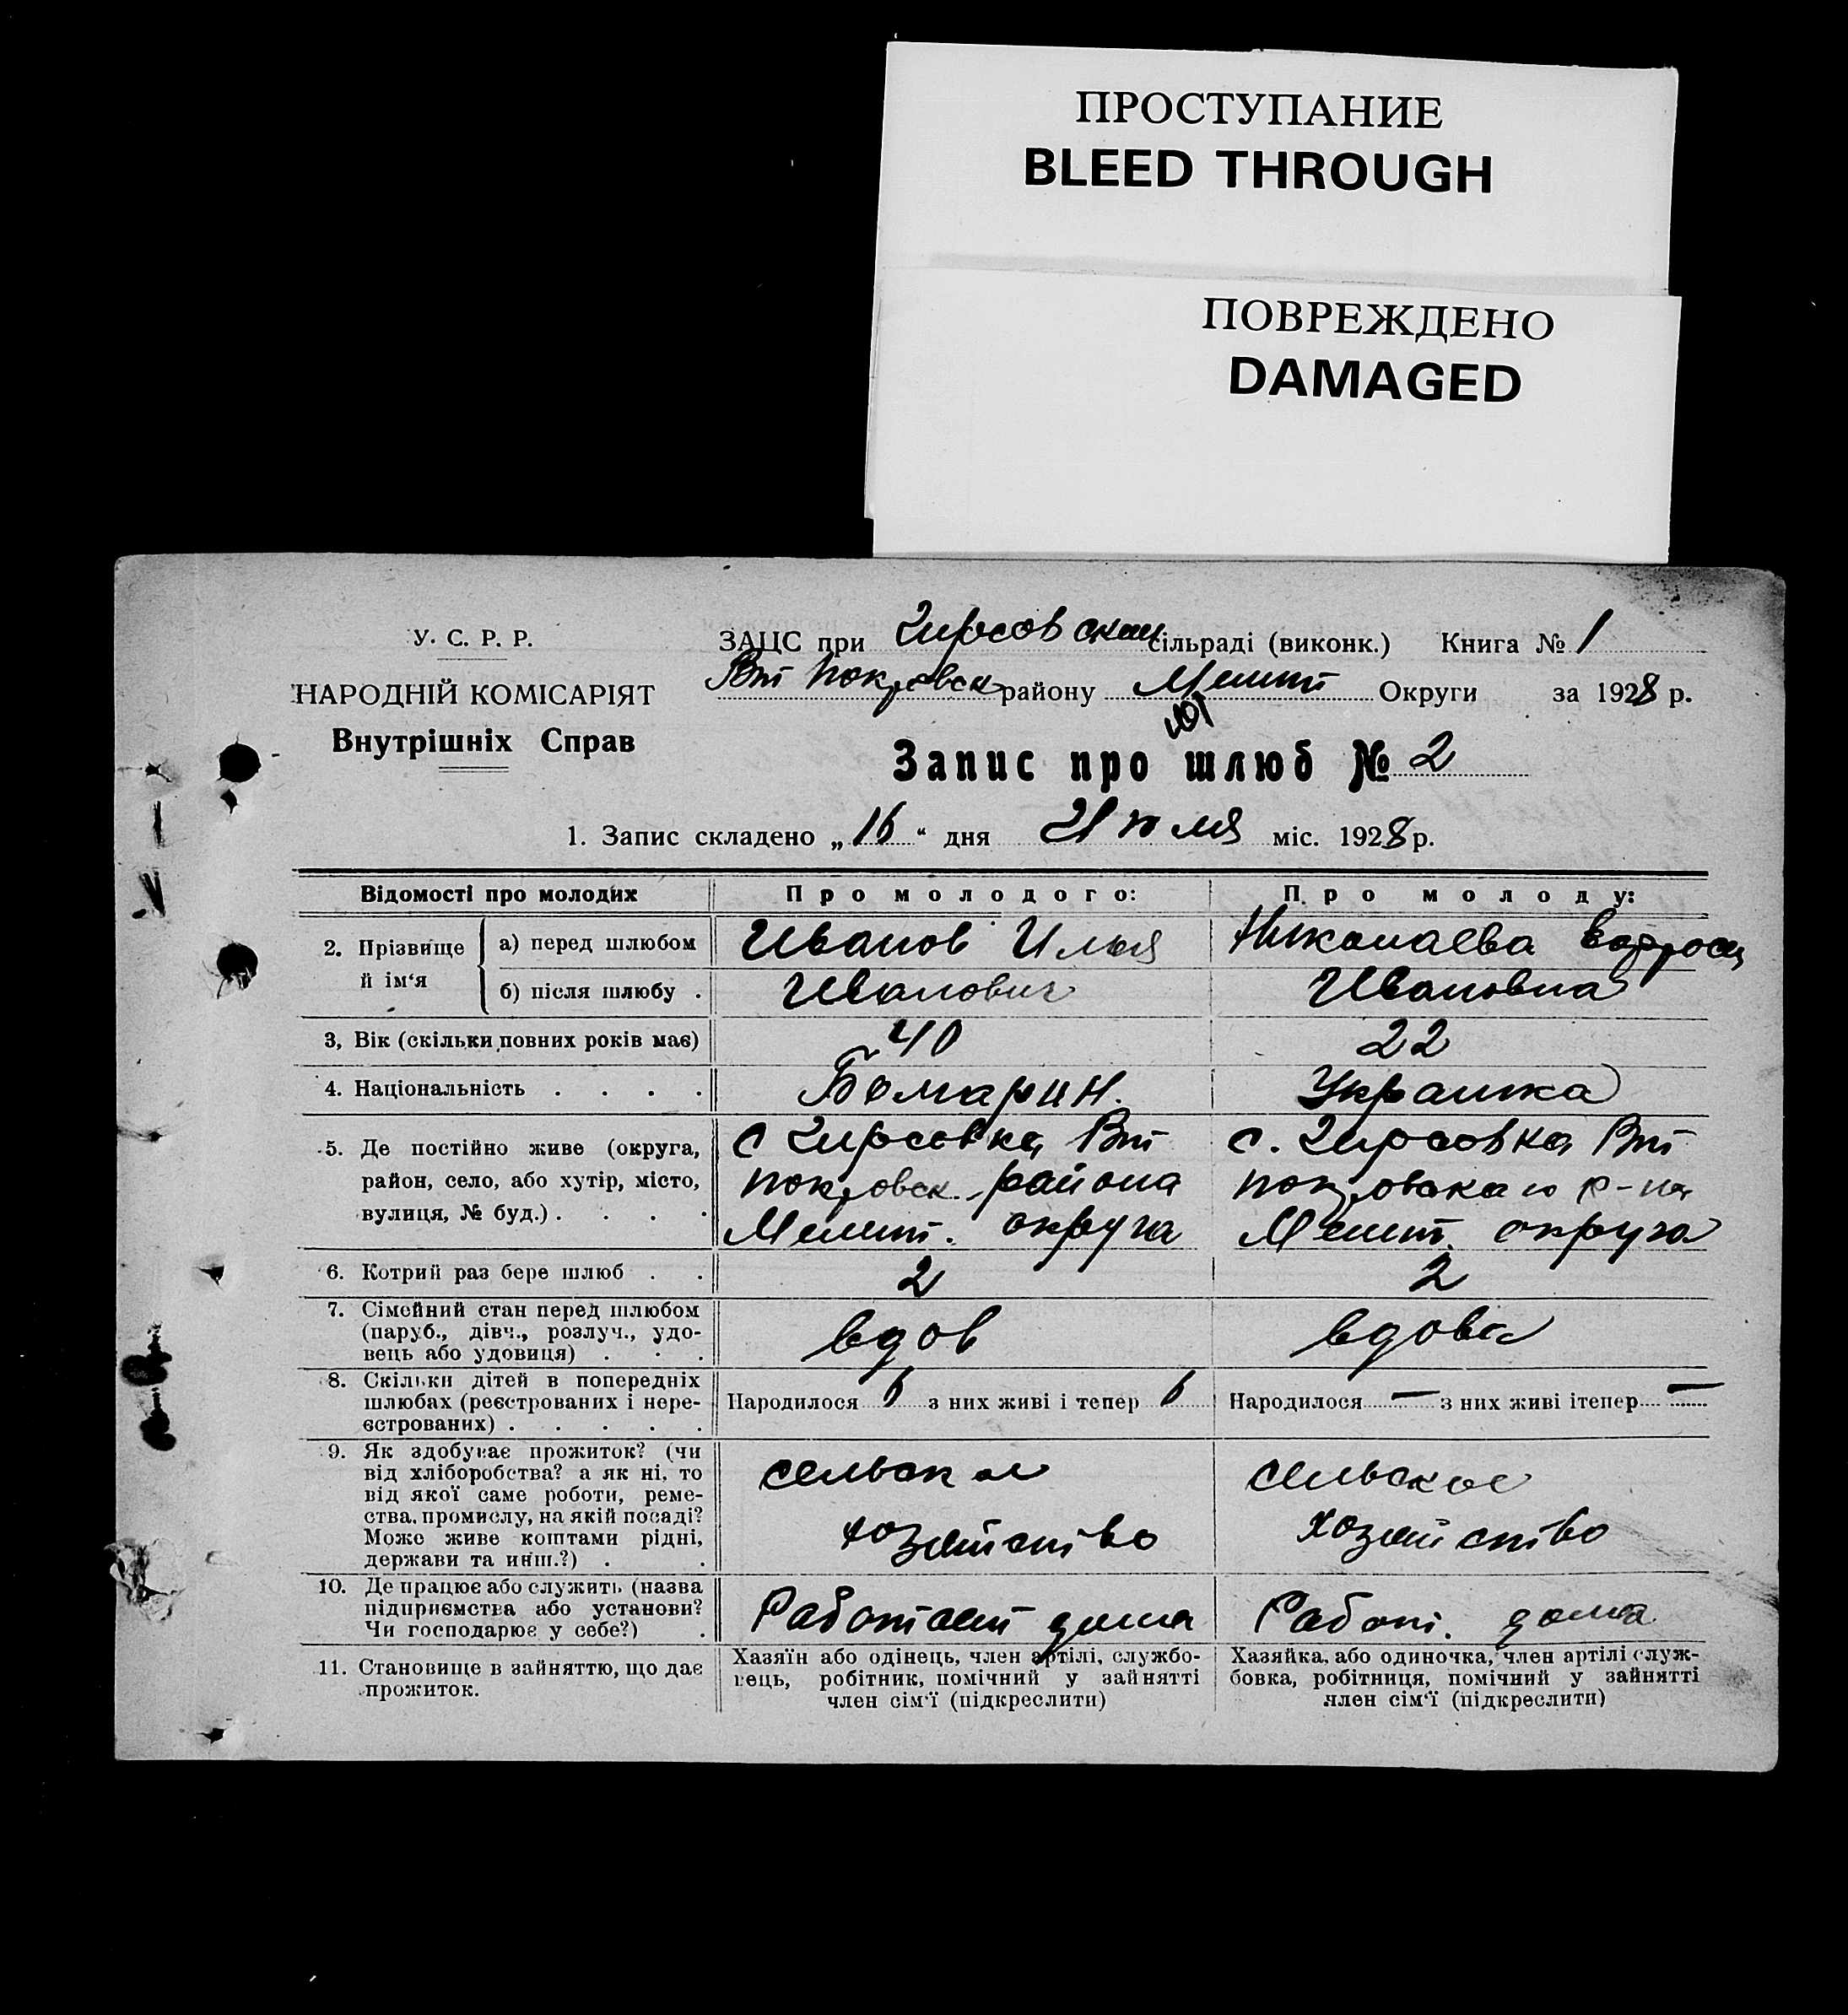 ПРОСТУПАНИЕ
BLEED THROUGH
ПОВРЕЖДЕНО
DAMAGED
У. С. Р. Р.
НАРОДНІЙ КОМІСАРІЯТ
Внутрішніх Справ
ЗАЦС при Гирсовском сільраді (виконк.) Книга № 1
Вт Покровск району Мелит Округи за 1928 р.
Запис про шлюб № 2
1. Запис складено „16“ дня Июля міс. 1928 р.
Відомості про молодих Про молодого: Про молоду:
2. Прізвище й ім'я а) перед шлюбом Иванов Илья Николаева
б) після шлюбу . Иванович Ивановна
3, Вік (скільки повних років має) 40 22
4. Національність . . . . Болгарин. Украинка
5. Де постійно живе (округа, с Гирсовка Вт с. Гирсовка Вт
район, село, або хутір, місто, покровск. района покровского р-на
вулиця, № буд.) . . . . Мелит. округа Мелит. округа
6. Котрий раз бере шлюб . . 2 2
7. Сімейний стан перед шлюбом
(паруб., дівч., розлуч., удо-
вець або удовиця) . . . вдов вдова
8. Скільки дітей в попередніх
шлюбах (реєстрованих і нере- Народилося 6 з них живі і тепер 6 Народилося — з них живі ітепер —
єстрованих) . . . . .
9. Як здобуває прожиток? (чи
від хліборобства? а як ні, то сельское сельское
від якої саме роботи, реме-
ства, промислу, на якій посаді?
Може живе коштами рідні, хозяйство хозяйство
держави та инш.?) . .
10. Де працює або служить (назва
підприємства або установи? Работает дома Работ. дома
Чи господарює у себе?) .
11. Становище в зайняттю, що дає
прожиток.
Хазяїн або одінець, член артілі, службо-
вець, робітник, помічний у зайнятті
член сім'ї (підкреслити)
Хазяйка, або одиночка, член артілі служ-
бовка, робітниця, помічний у зайнятті
член сім'ї (підкреслити)